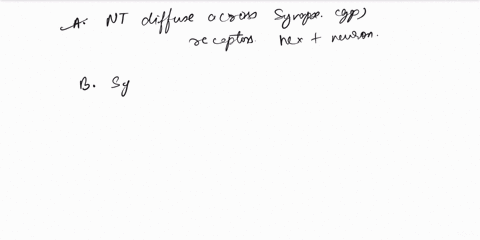 A. NT diffuse across Synapse. cgp)
receptors. nex + neuron.
B. Sy